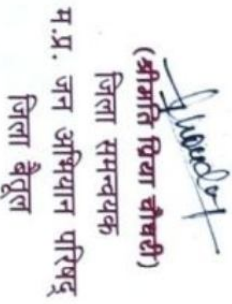 (श्रीमति प्रिया चौधरी)
जिला समन्वयक
म.प्र. जन अभियान परिषद्
जिला बैतूल